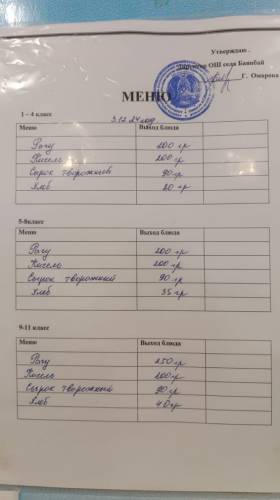 Утверждаю .
Директор ОШ села Баянбай
Г. Омарова
МЕНЮ
3.12.24 год.
1 – 4 класс
Меню Выход блюда
Рагу 200 гр
Кисель 200 гр
Сырок творожный 90 гр
Хлеб 20 гр
5-8класс
Меню Выход блюда
Рагу 200 гр
Кисель 200 гр
Сырок творожный 90 гр
Хлеб 35 гр
9-11 класс
Меню Выход блюда
Рагу 250 гр
Кисель 200 гр
Сырок творожный 90 гр
Хлеб 40 гр